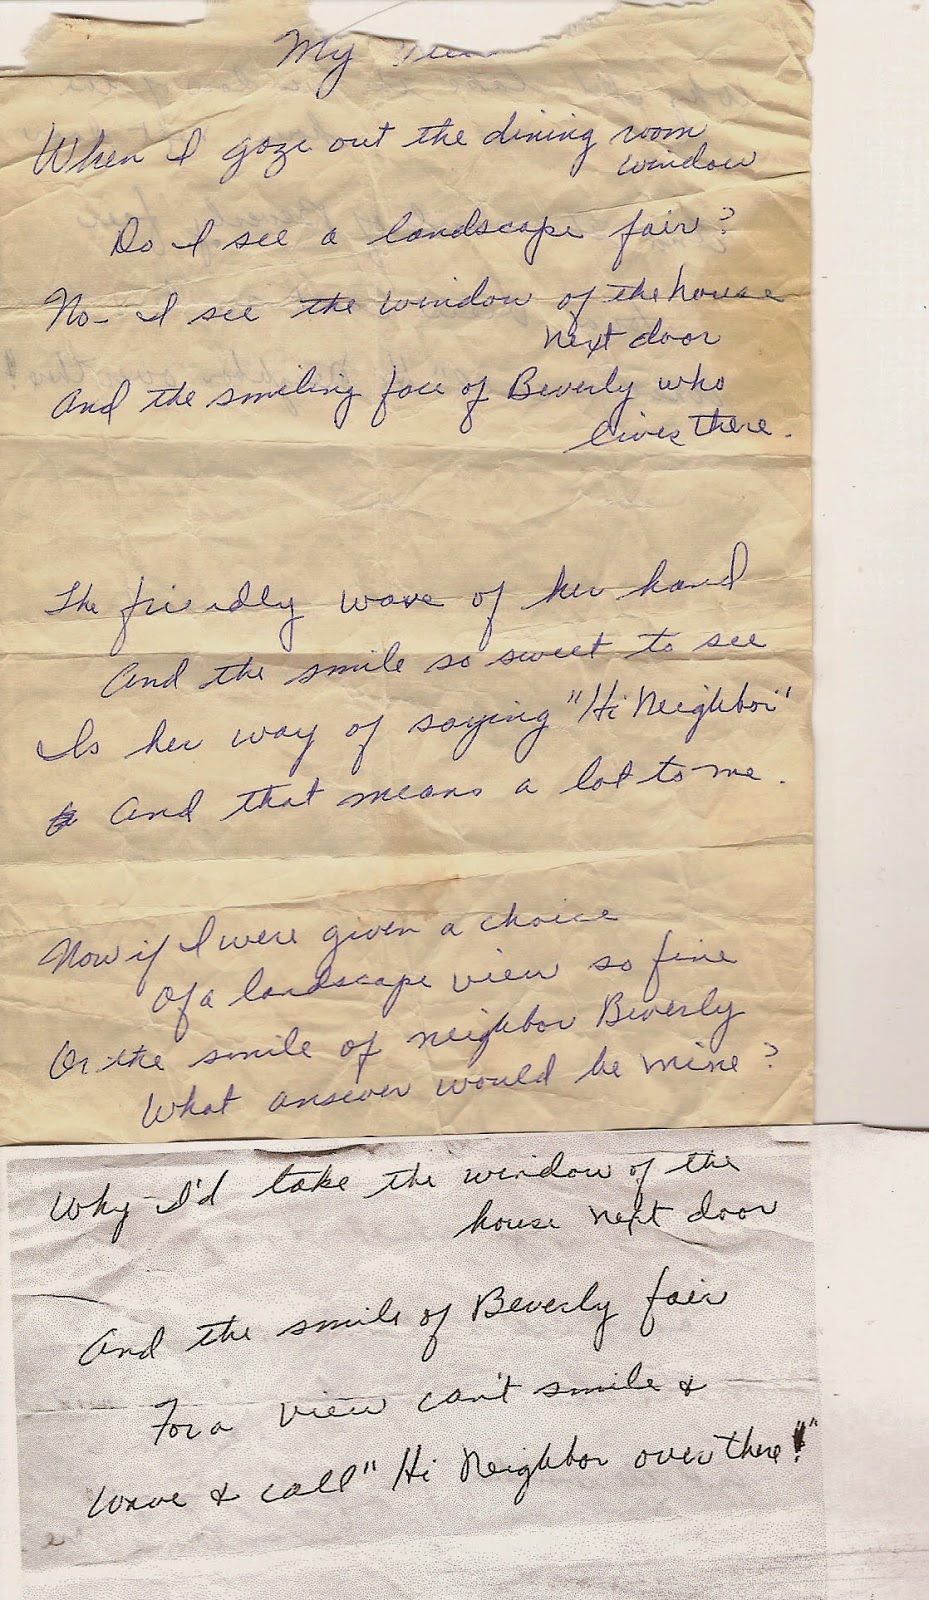 My
When I gaze out the dining room
window
Do I see a landscape fair?
No- I see the window of the house
next door
And the smiling face of Beverly who
lives there.
The friendly wave of her hand
And the smile so sweet to see
Is her way of saying "Hi Neighbor"
And that means a lot to me.
Now if I were given a choice
Of a landscape view so fine
Or the smile of neighbor Beverly
What answer would be mine?
Why- I'd take the window of the
house next door
And the smile of Beverly fair
For a view can't smile &
wave & call "Hi Neighbor over there!"